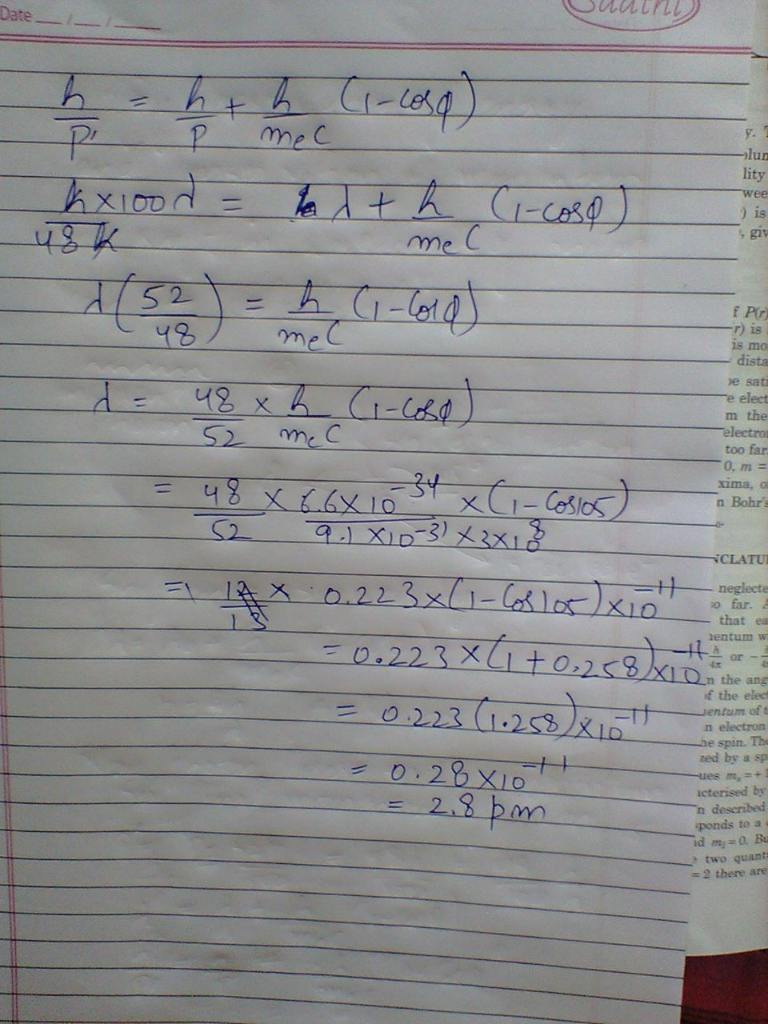 Date __/__/____
Saathi
h/P' = h/P + h/meC (1-cosφ)
h×100λ/48h = λ + h/meC (1-cosφ)
λ(52/48) = h/meC (1-cosφ)
λ = 48/52 × h/meC (1-cosφ)
= 48/52 × 6.6×10^-34/9.1×10^-31×3×10^8 × (1-cos105)
= 12/13 × 0.223×(1-cos105)×10^-11
= 0.223×(1+0.258)×10^-11
= 0.223(1.258)×10^-11
= 0.28×10^-11
= 2.8 pm
y. T
lity
wee
) is
, giv
f P(r)
r) is
is mo
dista
e sati
e elect
m the
electro
too far.
0, m =
xima, o
n Bohr's
NCLATU
neglecte
o far. A
that ea
entum w
or
n the ang
of the elect
entum of t
n electron
he spin. The
zed by a sp
ues ms = +
acterised by
n described
ponds to a
d ml = 0. Bu
two quant
= 2 there are